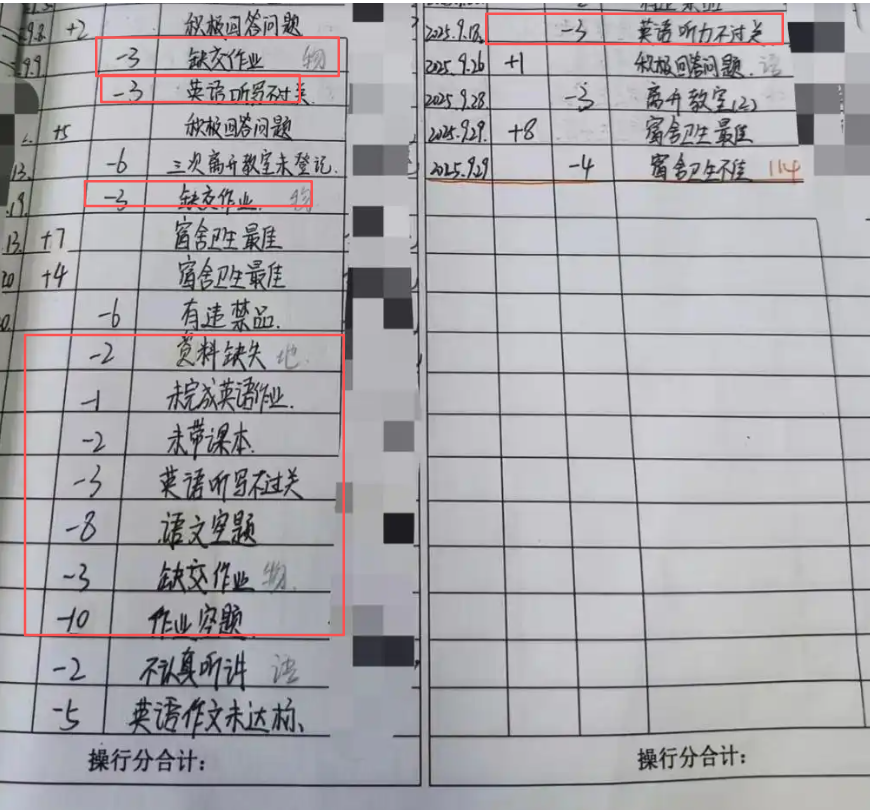 +2 积极回答问题
9.9. -3 缺交作业 物
-3 英语听写不过关
+5 积极回答问题
13. -6 三次离开教室未登记.
.19. -3 缺交作业. 物
13. +7 宿舍卫生最佳
20 +4 宿舍卫生最佳
-6 有违禁品.
-2 资料缺失 地.
-1 未完成英语作业.
-2 未带课本.
-3 英语听写不过关
-8 语文空题
-3 缺交作业 物.
-10 作业空题.
-2 不认真听讲 语
-5 英语作文未达标、
操行分合计：
2025.9.18. -3 英语听力不过关
2025.9.26 +1 积极回答问题. 语
2025.9.28 -3 离开教室(2)
2025.9.29. +8 宿舍卫生最佳
2025.9.29 -4 宿舍卫生不佳 114
操行分合计：